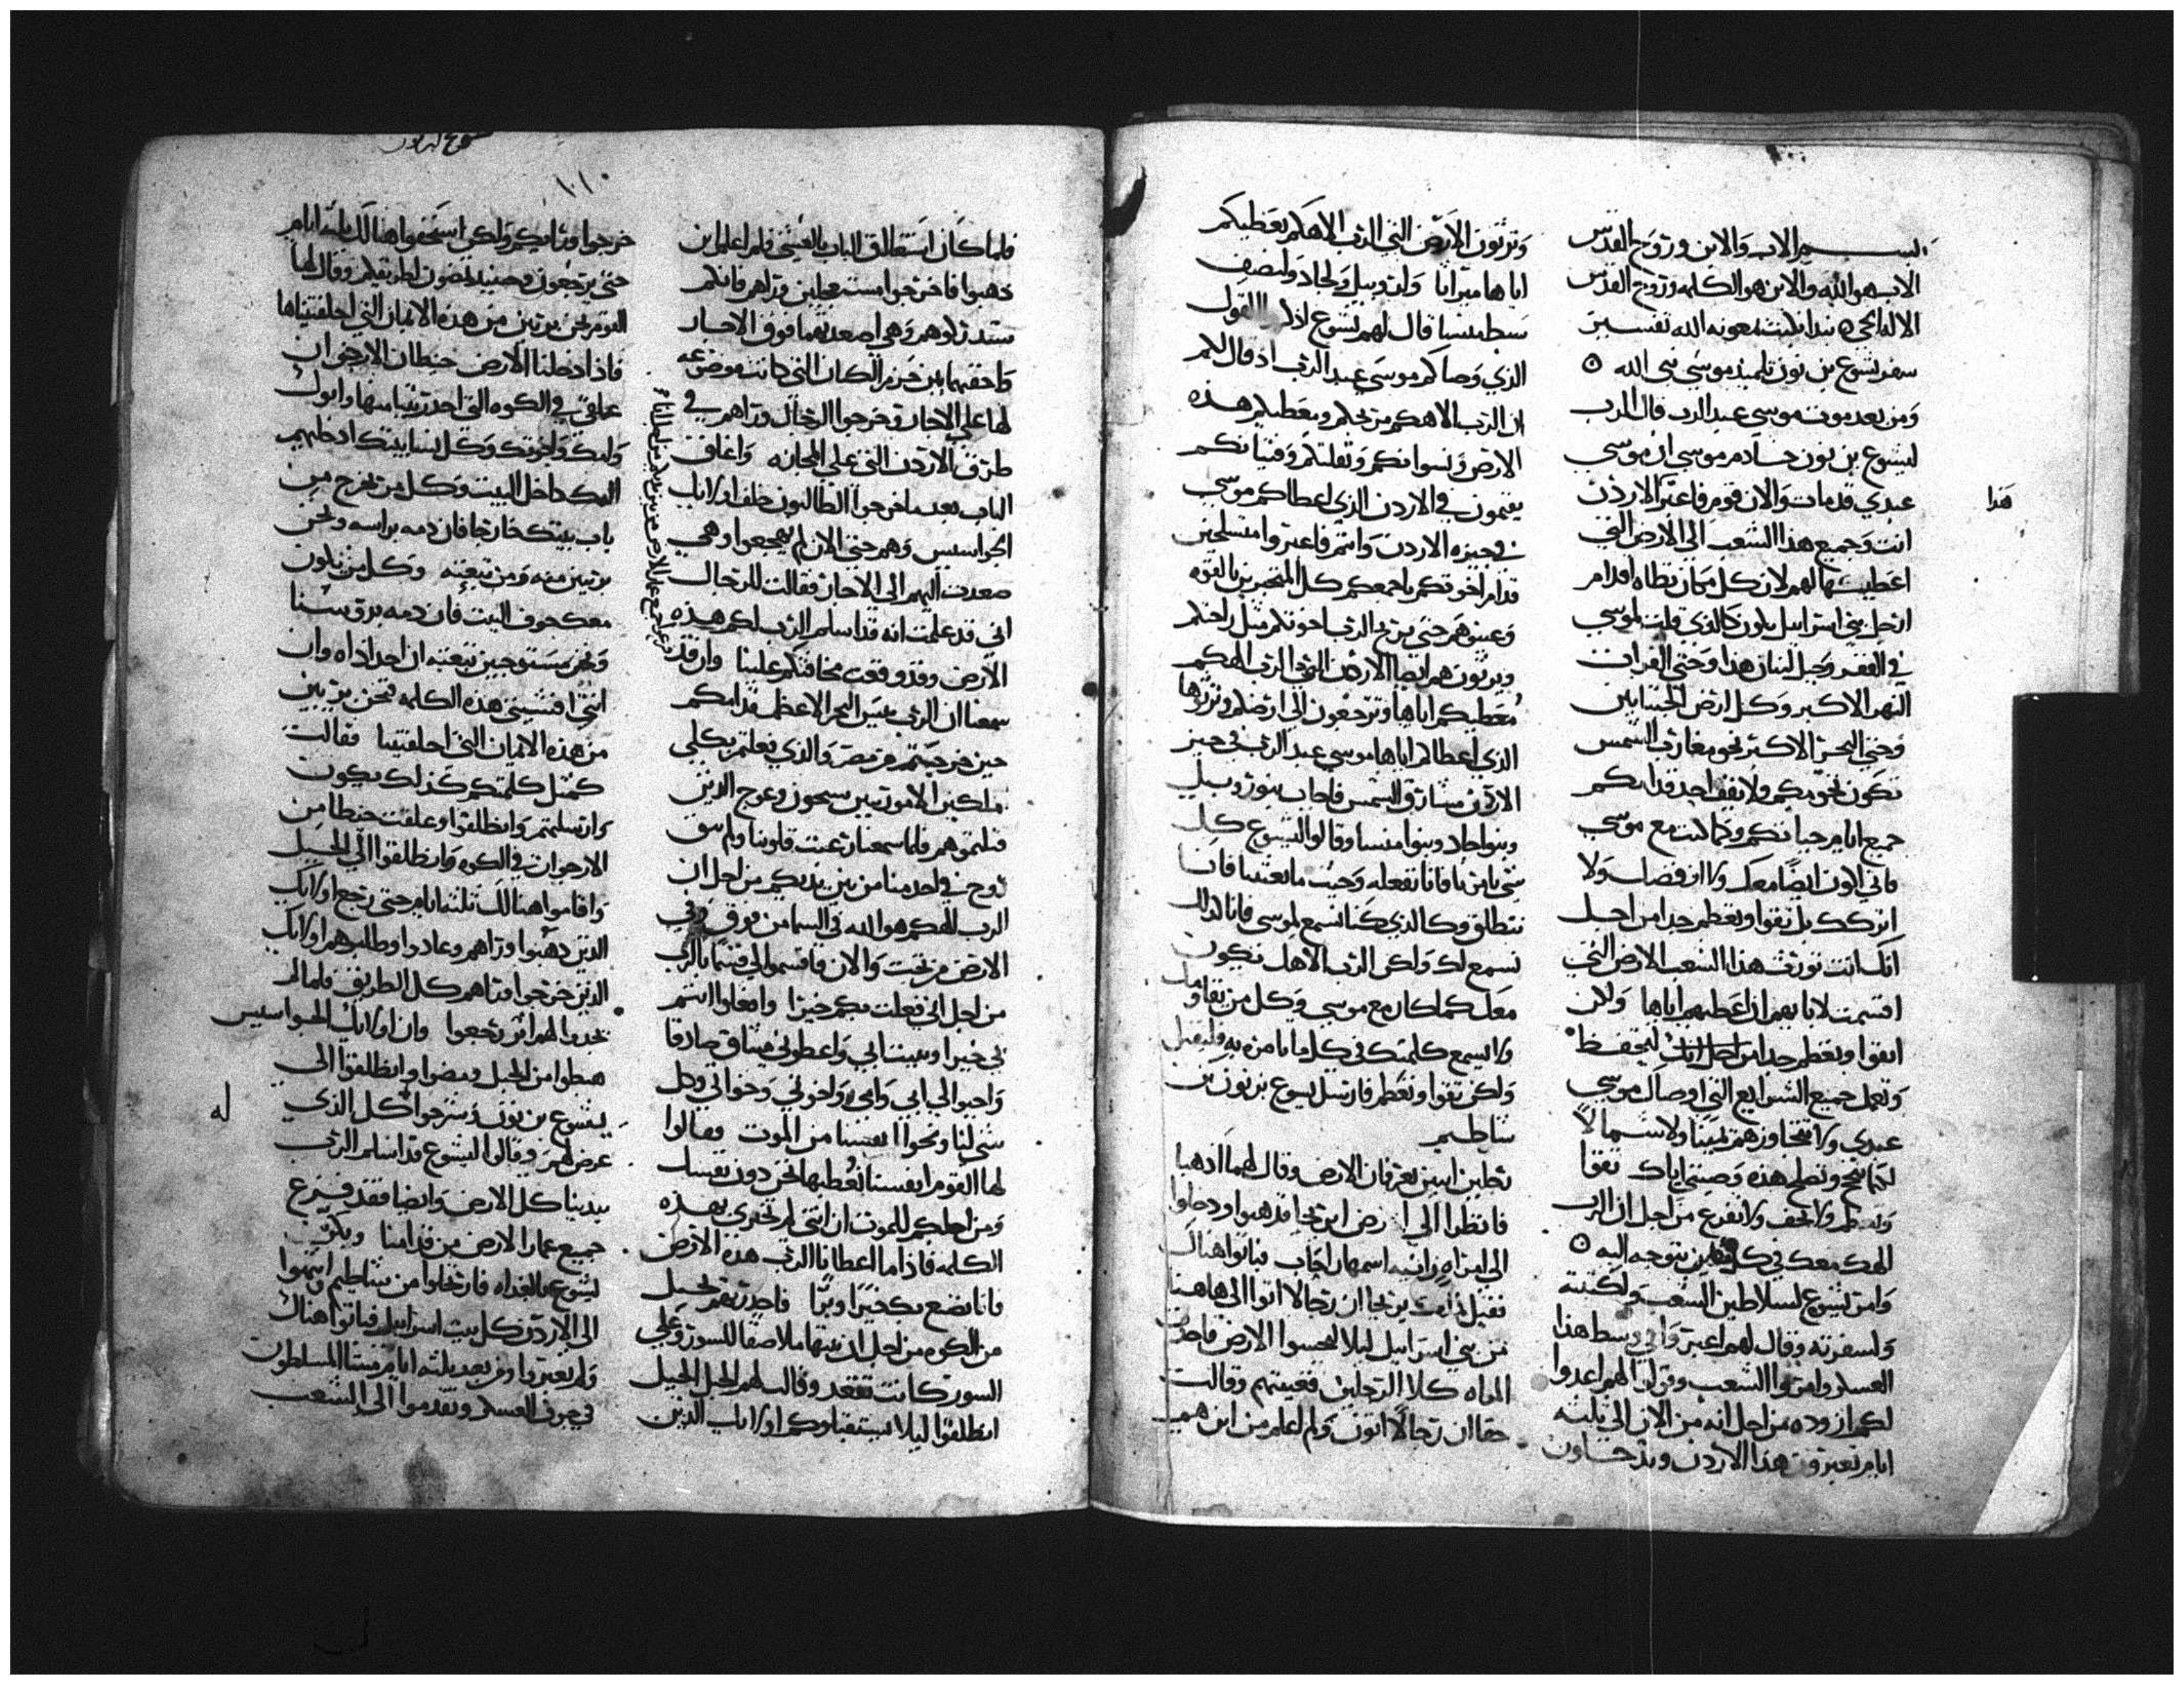 بسم الاب والابن وروح القدس
الاب هو الله والابن هو الكلمه وروح القدس
الاله الحي نبدا نكتب بمعونه الله تفسير
سفر يشوع بن نون تلميذ موسي نبي الله
ومن بعد موت موسي عبد الرب قال الرب
ليشوع بن نون خادم موسي ان موسي
عبدي قد مات والان قوم فاعبر الاردن
هذا
انت وجميع هذا الشعب الي الارض التي
اعطيتها لهم لان كل مكان تطاه اقدام
ارجل بني اسراييل يكون كالذي قلت لموسي
في القفر وجبل لبنان هذا وحتي الفرات
النهر الاكبر وكل ارض الحيثانيين
وحتي البحر الاكبر نحو مغارب الشمس
تكون تخومكم ولا يقف احد قدامكم
جميع ايام حياتكم وكما كنت مع موسي
فاني اكون ايضا معك ولا ارفضك ولا
اتركك بل تقوا وتعظم جدا من اجل
انك انت تورث هذا الشعب الارض التي
اقسمت لابايهم ان اعطيهم اياها ولان
اتقوا وتعظم جدا من اجل انك لتحفظ
وتعمل جميع الشرايع التي اوصاك موسي
عبدي ولا تتجاوزهم يمينا ولا شمالا
لكيما تنجح وتصلح هذه وصيتي اياك تقوا
وتعظم ولا تخف ولا تفزع من اجل ان الرب
الهك معك في كل حين تتوجه اليه
وامر يشوع لسلاطين الشعب ولكتبته
ولسفرته وقال لهم اعبروا في وسط هذا
العسكر وامروا الشعب وقولوا لهم اعدوا
لكم ازوده من اجل انه من الان الي ثلثه
ايام تعبرون هذا الاردن وتدخلون
وترثون الارض التي الرب الاهكم يعطيكم
اياها ميراثا ولروبيل ولجاد ولنصف
سبط منسا قال لهم يشوع اذكروا القول
الذي وصاكم موسي عبد الرب اذ قال لكم
ان الرب الاهكم مريحكم ويعطيكم هذه
الارض ونسوانكم وثقلتكم وقنيانكم
يقيمون في الاردن الذي اعطاكم موسي
في حيزه الاردن وانتم فاعبروا متسلحين
قدام اخوتكم باجمعكم كل المتجبرين بالقوه
وعينوهم حتي يريح الرب اخوتكم مثل راحتكم
ويرثون هم ايضا الارض الذي الرب الهكم
معطيكم اياها وترجعون الي ارضكم وترثوها
الذي اعطاكم اياها موسي عبد الرب في حيز
الاردن مشارق الشمس فاجاب بنوا روبيل
وبنوا جاد وبنوا منسا وقالوا ليشوع كل
شي تامرنا فانا نفعله وحيث ما بعثتنا فانا
ننطلق وكالذي كنا نسمع لموسي فانا كذلك
نسمع لك ولكن الرب الاهك يكون
معك كما كان مع موسي وكل من يقاومك
ولا يسمع كلمتك في كل ما تامره به فليقتل
ولكن تقوا وتعظم فارسل يشوع بن نون من
شاطيم
رجلين اثنين يعرفان الارض وقال لهما اذهبا
فانظرا الي ارض اريحا فذهبوا ودخلوا
الي امراه زانيه اسمها راحاب فباتوا هناك
فقيل لملك يريحا ان رجالا اتوا الي هاهنا
من بني اسراييل ليلا ليجسوا الارض فاخذت
المراه كلا الرجلين فغيبتهم وقالت
حقا ان رجالا اتون ولم اعلم من اين هم
١١٠
فلما كان استطلاق الباب بالعشي فلم اعلم اين
ذهبوا فاخرجوا مستعجلين وراهم فانكم
ستدركوهم وهي اصعدتهما فوق الاجار
واخفتهما بين حزم الكتان التي كانت موضوعه
لها علي الاجار وخرجوا الرجال وراهم في
طرق الاردن التي علي المجازه واغلق
الباب بعد ما خرجوا الطالبون خلف اولايك
الجواسيس وهم حتي الان لم يهجعوا وهي
صعدت اليهم الي الاجار فقالت للرجال
اني قد علمت انه قد اسلم الرب لكم هذه
الارض وقد وقعت مخافتكم علينا وان قد
سمعنا ان الرب يبس البحر الاعظم قدامكم
حين خرجتم من مصر والذي فعلتم بكلي
ملكين الامورتيين سيحون وعوج الذين
قتلتموهم فلما سمعنا رعبت قلوبنا ولم يبق
روح في احد منا من بين يديكم من اجل ان
الرب الهكم هو الله في السما من فوق وفي
الارض من تحت والان فاقسموا لي قسما بالرب
من اجل اني فعلت بكم خيرا وافعلوا انتم
بي خيرا وببيت ابي واعطوني ميثاق صادقا
واحيوا لي ابي وامي واخوتي وخواتي وكل
شي لنا ونجوا انفسنا من الموت فقالوا
لها القوم انفسنا نعطيها نحن دون نفسك
ومن اجلكم للموت ان انتي لم تخبري بهذه
الكلمه فاذا ما اعطانا الرب هذه الارض
فانا نصنع بك خيرا وبرا فاحدرتهم بحبل
من الكوه من اجل ان بيتها ملاصقا للسور وعلي
السور كانت تقعد وقالت لهم الي الجبل
انطلقوا ليلا يستقبلوكم اولايك الذين
خرجوا وراكم ولكن استخفوا هنالك ثلثه ايام
حتي يرجعون وحينيذ تمضون لطريقكم وقال لها
القوم نحن بريين من هذه الايمان التي احلفتيناها
فاذا دخلنا الارض خيطان الارجوان
علقي في الكوه التي احدرتينا منها وابوك
وامك واخوتك وكل انسا بيتك ادخليهم
اليك داخل البيت وكل من يخرج من
باب بيتك خارجا فان دمه براسه ونحن
بريين منه ومن تبعته وكل من يكون
معك جوف البيت فان دمه برقبتنا
ونحن مستوجبين تبعته ان احد اذاه وان
انتي افشيتي هذه الكلمه فنحن بريين
من هذه الايمان التي احلفتينا فقالت
كمثل كلمتكم كذلك يكون
وارسلتهم وانطلقوا وعلقت خيطا من
الارجوان في الكوه وانطلقوا الي الجبل
واقاموا هنالك ثلثه ايام حتي رجع اولايك
الذين ذهبوا وراهم وعادوا وطلبوهم اولايك
الذين خرجوا وراهم كل الطريق فلما لم
يجدوا لهم اثر رجعوا وان اولايك الجواسيس
هبطوا من الجبل ومضوا وانطلقوا الي
يشوع بن نون وشرحوا كل الذي
له
عرض لهم وقالوا ليشوع قد اسلم الرب
بيدينا كل الارض وايضا فقد فزع
جميع عمار الارض من قدامنا وبكر
يشوع بالغداه فارتحلوا من شاطيم وانتهوا
الي الاردن كل بيت اسراييل فباتوا هناك
ولم يعبروا ومن بعد ثلثه ايام مشا المسلطون
في جوف العسكر وتقدموا الي الشعب